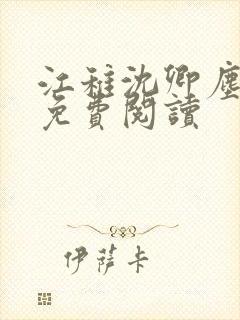 江稚沈卿塵
免費閱讀
伊薩卡